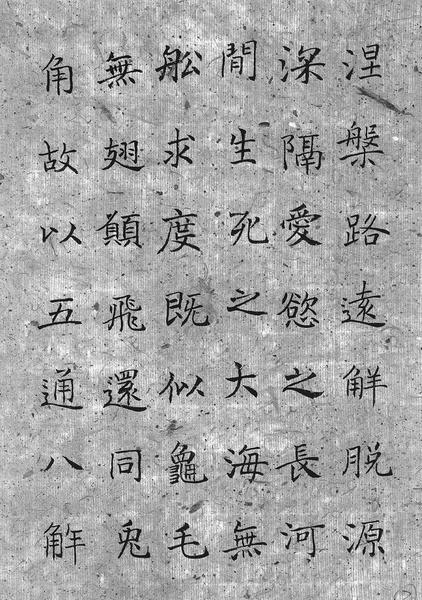 涅槃路遠解脫源
深隔愛慾之長河
閒生死之大海無
舩求度既似龜毛
無翅願飛還同兎
角故以五通八解